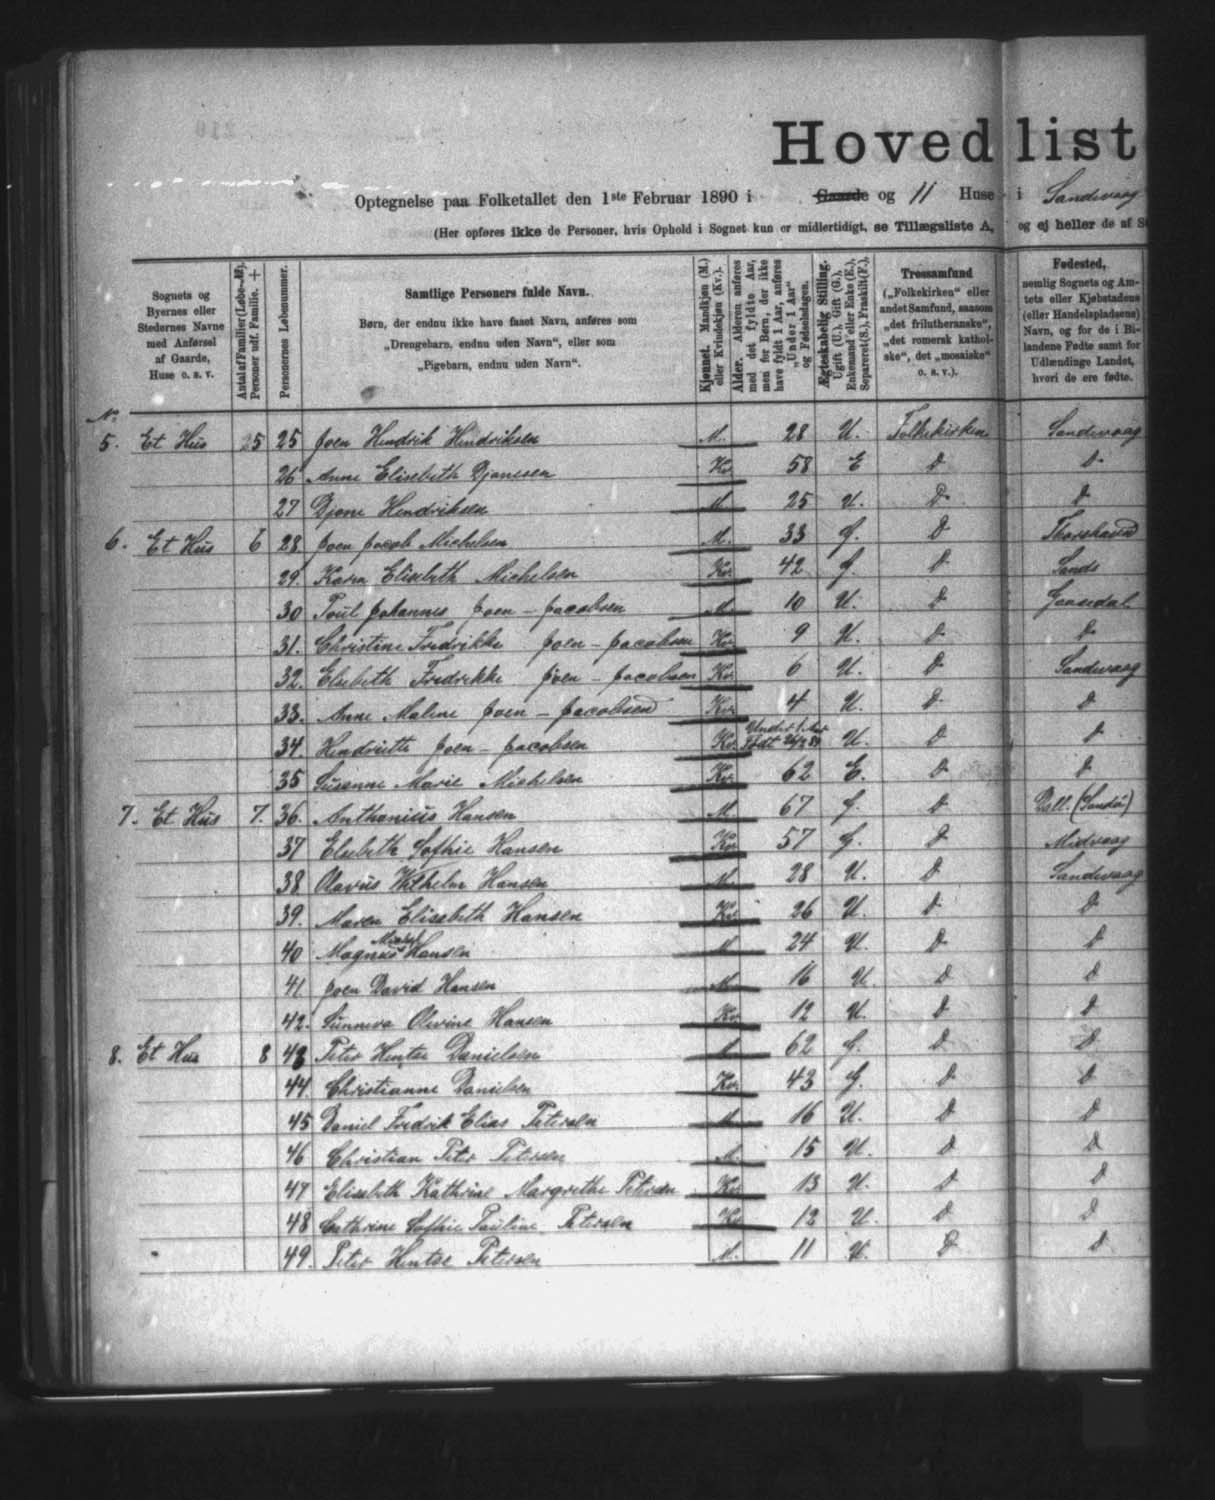 Hovedlist
Optegnelse paa Folketallet den 1ste Februar 1890 i Gaarde og 11 Huse i Sandevaag
(Her opføres ikke de Personer, hvis Ophold i Sognet kun er midlertidigt, se Tillægsliste A, og ej heller de af S
Sognets og Byernes eller Stedernes Navne med Anførsel af Gaarde, Huse o. s. v.
Antal af Familier (Løbe-№). Personer udf. Familie. +
Personernes Løbenummer.
Samtlige Personers fulde Navn.
Børn, der endnu ikke have faaet Navn, anføres som „Drengebarn, endnu uden Navn“, eller som „Pigebarn, endnu uden Navn“.
Kjønnet. Mandkjøn (M.) eller Kvindekjøn (Kv.).
Alder. Alderen anføres med det fyldte Aar, men for Børn, der ikke have fyldt 1 Aar, anføres „Under 1 Aar“ og Fødselsdagen.
Ægteskabelig Stilling. Ugift (U.), Gift (G.), Enkemand eller Enke (E.), Separeret (S.), Fraskilt (F.),
Trossamfund („Folkekirken“ eller andet Samfund, saasom „det frilutheranske“, „det romersk katholske“, det „mosaiske“ o. s. v.).
Fødested, nemlig Sognets og Amtets eller Kjøbstadens (eller Handelspladsens) Navn, og for de i Bilandene Fødte samt for Udlændinge Landet, hvori de ere fødte.
№
5. Et Hus 25 25 Joen Hendrik Hendriksen M. 28 U. Folkekirken Sandevaag
26 Anne Elisebeth Djonesen Kv. 58 E D D
27 Djone Hendriksen M 25 U. D D
6. Et Hus 6 28 Joen Jacob Michelsen M. 33 G. D Thorshavn
29. Karen Elisebeth Michelsen Kv. 42 G. D Sands
30 Poul Johannes Joen - Jacobsen M. 10 U. D
31. Christine Fredrikke Joen - Jacobsen Kv. 9 U. D D
32. Elsebeth Fredrikke Joen - Jacobsen Kv. 6 U. D Sandevaag
33. Anne Malene Joen - Jacobsen Kv. 4 U. D D
34 Hendriette Joen - Jacobsen Kv. Under 1 Aar Født U. D D
35 Susanne Marie Michelsen Kv. 62 E. D D
7. Et Hus 7. 36. Anthonius Hansen M. 67 G. D Dall. (Sandø)
37 Elsebeth Sofhie Hansen Kv. 57 G. D Midvaag
38 Olavus Wilhelm Hansen M. 28 U. D Sandevaag
39. Maren Elisebeth Hansen Kv. 26 U. D D
40 Magnus Michel Hansen M 24 U. D D
41 Joen David Hansen M. 16 U. D D
42. Sunneva Olevine Hansen Kv. 12 U. D D
8. Et Hus 8 43 Peter Hentze Danielsen M 62 G. D D
44. Christianne Danielsen Kv. 43 G. D D
45 Daniel Fredrik Elias Petersen M. 16 U. D D
46 Christian Peter Petersen M. 15 U. D D
47 Elisebeth Kathrine Margrethe Petersen Kv. 13 U. D D
48 Cathrine Sofhie Pauline Petersen Kv 12 U. D D
49. Peter Hentze Petersen M. 11 U. D D